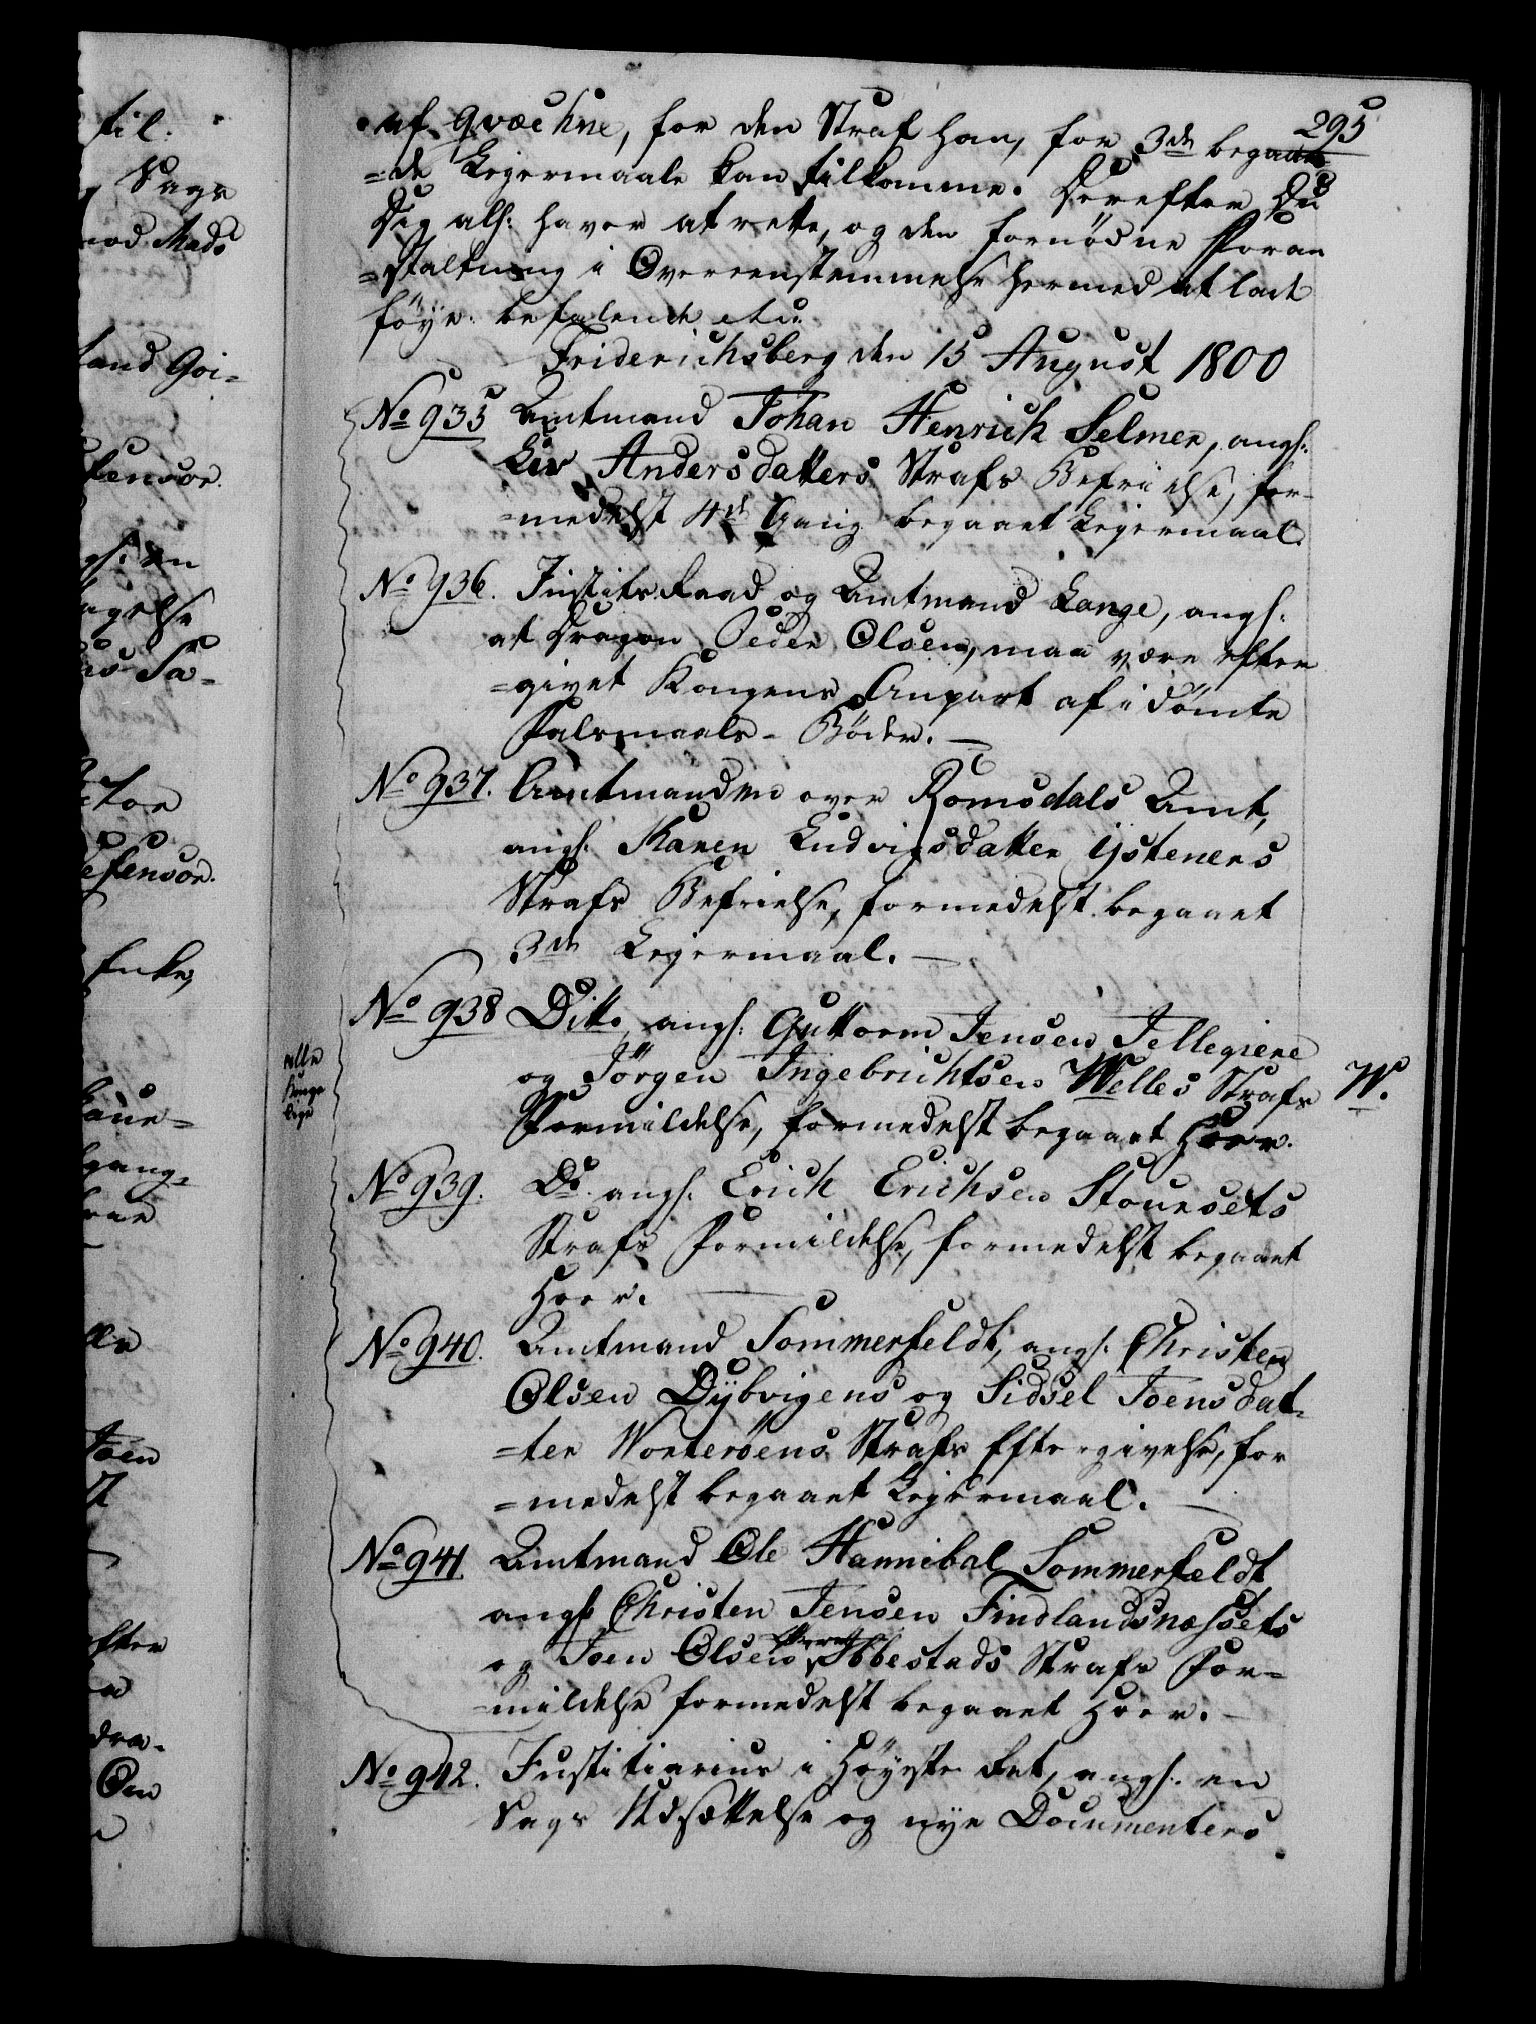 295
af Qvæhne, for den Straf han, for 3de begaae-
=de Lejermaale kan tilkomme. Derefter Du
Dig als: haver at rette, og den fornødne Foran
=staltning i Overeensstemmelse hermed at lade
føye. befalende etc:
Friderichsberg den 15 August 1800
No 935 Amtmand Johan Henrich Selmer, angs:
Liv Andersdatters Strafs Befrielse, for-
=medelst 4de Gang begaaet Lejermaal.
No 936. Justits Raad og Amtmand Lange, angs:
at Dragon Peder Olsen, maa være efter
=givet Kongens Anpart af idømte
Falsmaals-Bøder.
No 937. Amtmanden over Romsdals Amt,
angs: Karen Ludvigsdatter Ystenens
Strafs Befrielse, formedelst begaaet
3de Lejermaal.
No 938 Ditto, angs: Guttorm Jensen Tellegiene
og Jörgen Ingebrichtsen Welles Strafs W.
Formildelse, formedelst begaaet Hoer.
alle
No 939. Do. angs: Erich Erichsen Stoursets
Strafs Formildelse, formedelst begaaet
Hoer.
No 940. Amtmand Sommerfeldt, angs: Christen
Olsen Dÿbvigens og Sidsel Joensdat-
=ter Worterøens Strafs Eftergivelse, for
=medelst begaaet Lejermaal.
No 941. Amtmand Ole Hannibal Sommerfeldt
angs: Christen Jensen Findlandsnæssets
og Joen Olsen Ibbestads Strafs For-
=mildelse formedelst begaaet Hoer.
No 942. Justitiarius i Høyeste Ret, angs: en
Sags Udsættelse og nye Documenters